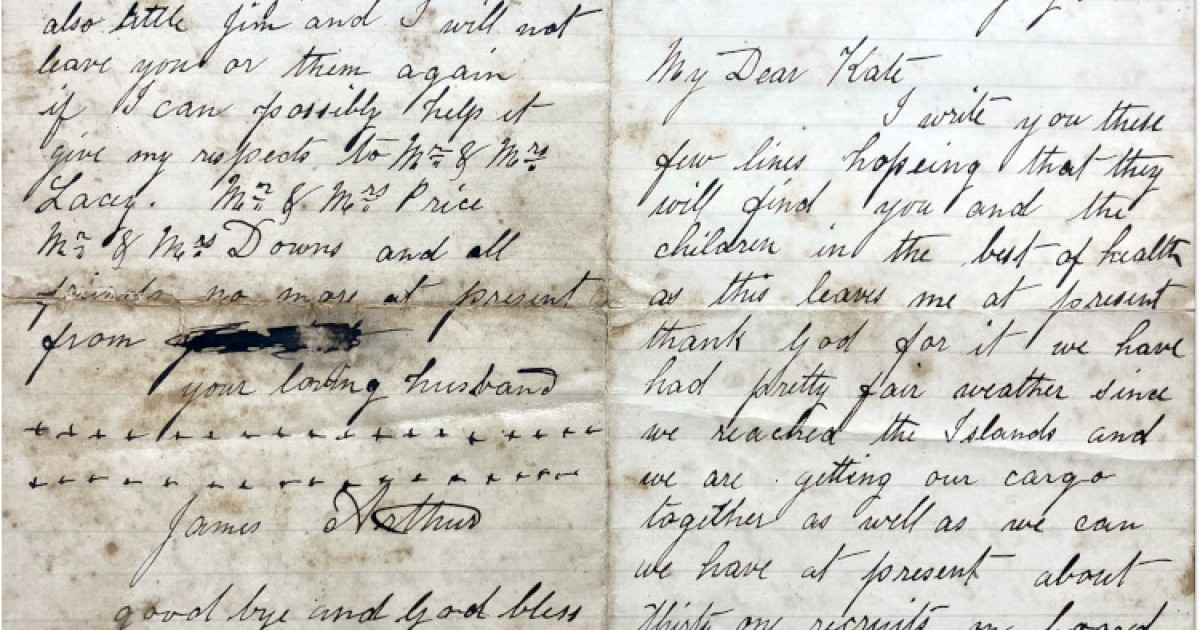 also little Jim and I will not
leave you or them again
if I can possibly help it
give my respects to Mr & Mrs
Lacey. Mr & Mrs Price
Mr & Mrs Downs and all
friends no more at present
from
your loving husband
+ + + + + + + + + + + + + + + + + + + +
+ + + + + + + + + + + + + + + + + + +
James Arthur
good bye and God bless
My Dear Kate
I write you these
few lines hopeing that they
will find you and the
children in the best of health
as this leaves me at present
thank God for it we have
had pretty fair weather since
we reached the Islands and
we are getting our cargo
together as well as we can
we have at present about
thirty one recruits on board